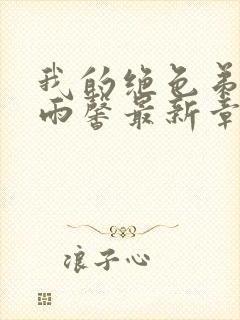 我的绝色弟
雨馨最新章
浪子心